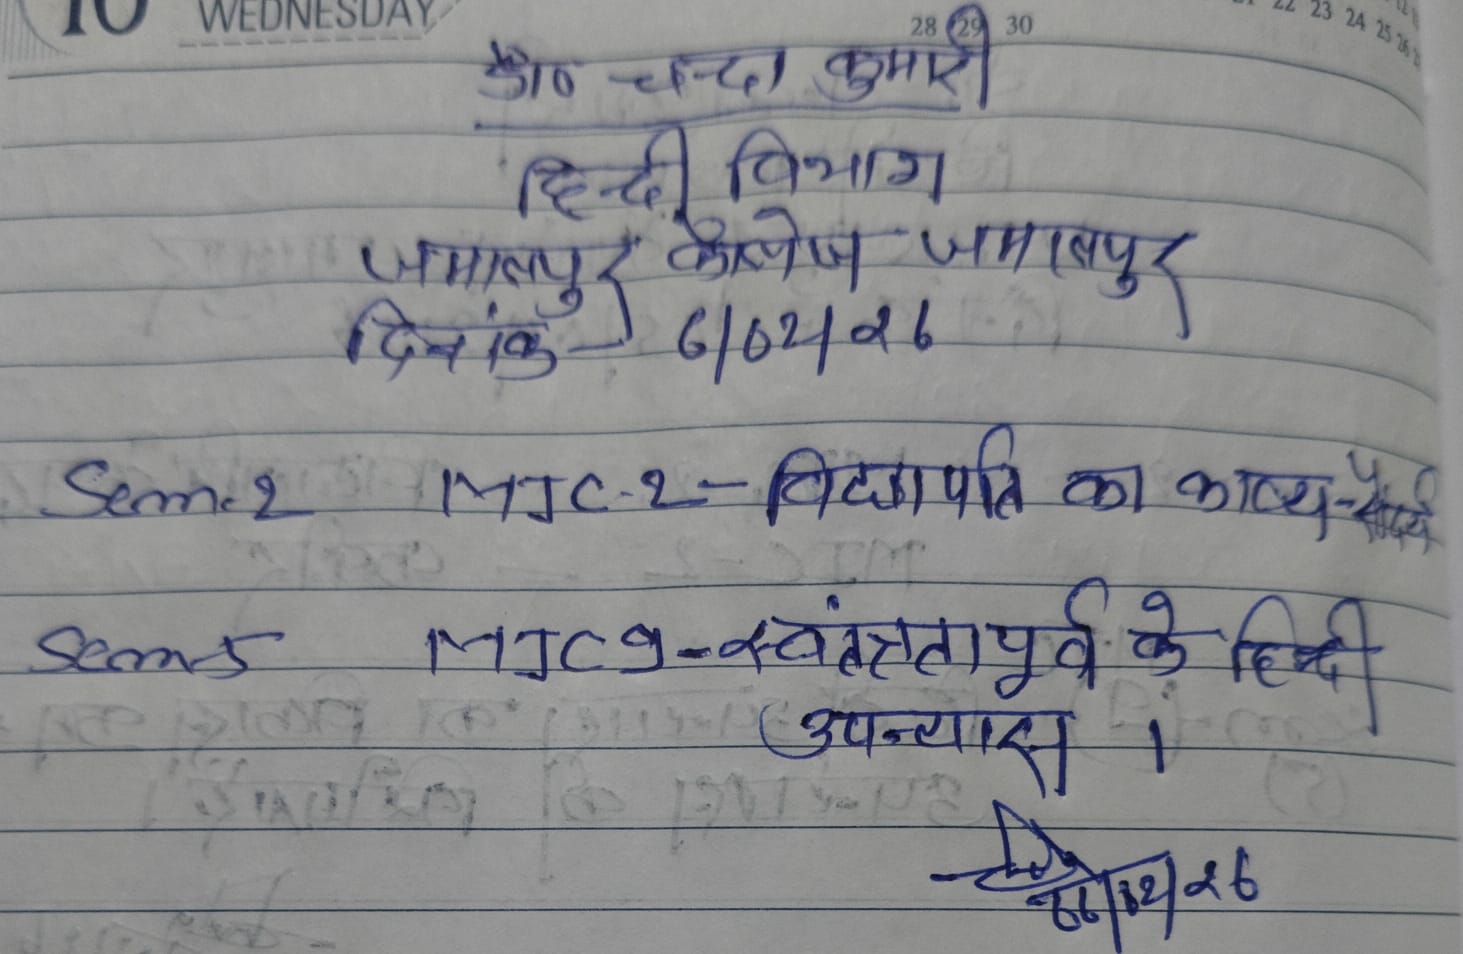 10 WEDNESDAY
28 29 30
22 23 24 25 26
डा० चन्दा कुमारी
हिन्दी विभाग
जमालपुर कॉलेज जमालपुर
दिनांक - 6/02/26
Sem-2 MJC-2 - विद्यापति का काव्य-सौंदर्य
Sem-5 MJC9 - स्वंतत्रता पूर्व के हिन्दी
उपन्यास ।
06/02/26